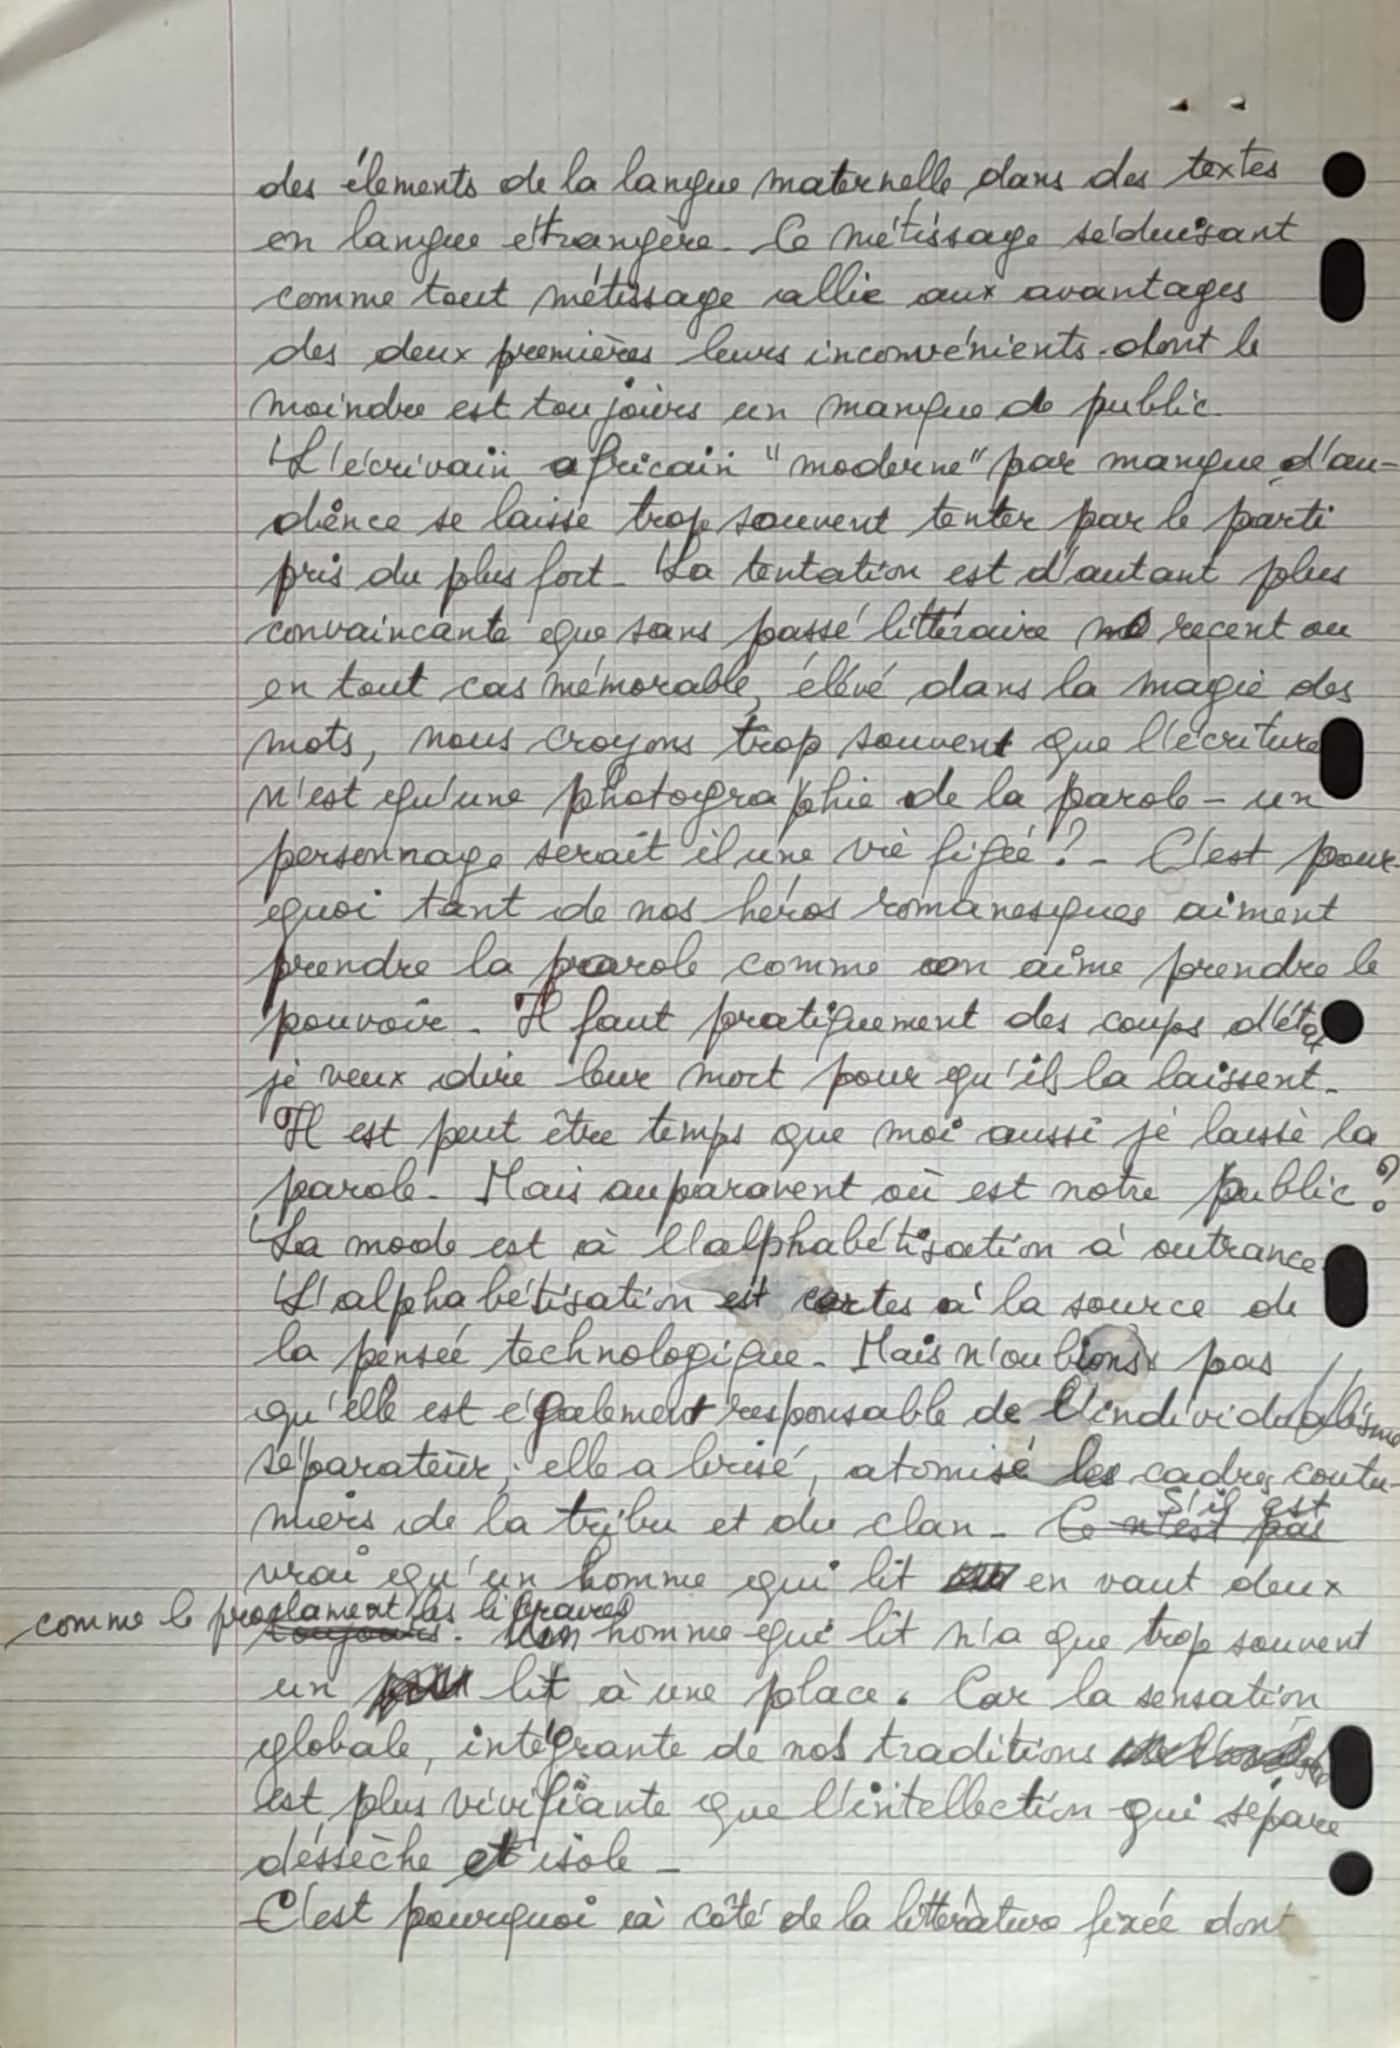 des élements de la langue maternelle dans des textes
en langue étrangère. Ce métissage séduisant
comme tout métissage allie aux avantages
des deux premières leurs inconvénients dont le
moindre est toujours un manque de public.
L'écrivain africain "moderne" par manque d'au-
dience se laisse trop souvent tenter par le parti
pris du plus fort. La tentation est d'autant plus
convaincante que sans passé littéraire recent ou
en tout cas mémorable, élévé dans la magie des
mots, nous croyons trop souvent que l'écriture
n'est qu'une photographie de la parole - un
personnage serait il une vie figée? - C'est pour-
quoi tant de nos héros romanesques aiment
prendre la parole comme on aime prendre le
pouvoir. Il faut pratiquement des coups d'état
je veux dire leur mort pour qu'ils la laissent.
Il est peut être temps que moi aussi je laisse la
parole. Mais auparavent où est notre public?
La mode est à l'alphabétisation à outrance
L'alphabétisation est certes à la source de
la pensée technologique. Mais n'oublions pas
qu'elle est également responsable de l'individualisme
séparateur; elle a brisé, atomisé les cadres coutu-
miers de la tribu et du clan - Ce n'est pas S'il est
vrai qu'un homme qui lit en vaut deux
comme le proclament les libraires toujours. Un homme qui lit n'a que trop souvent
un lit à une place. Car la sensation
globale, intégrante de nos traditions
est plus vivifiante que l'intellection qui sépare
déssèche et isole -
C'est pourquoi à côté de la littérature fixée dont